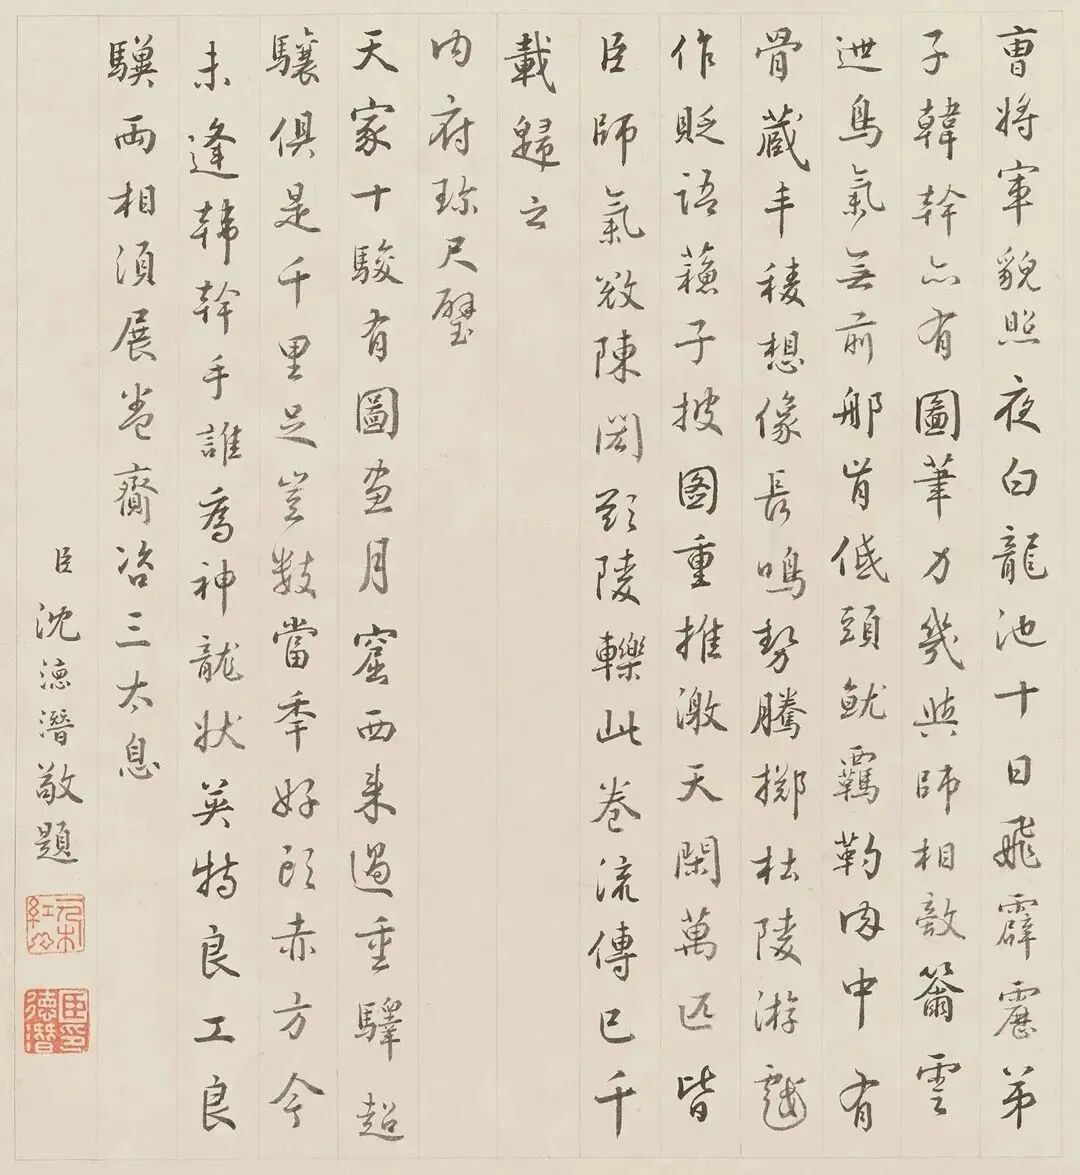 曹將軍貌照夜白龍池十日飛霹靂弟
子韓幹亦有圖筆力幾與師相敵籋雲
迣鳥氣無前那肯低頭就羈靮肉中有
骨蔵丰稜想像長鳴勢騰擲杜陵游戲
作貶語蘓子披圖重推激天閑萬匹皆
臣師氣陳閎陵轢此卷流傳已千
載歸之
内府珎尺璧
天家十駿有圖畫月窟西来過重驛超
驤俱是千里足豈數當季好頭赤方今
未逢韩幹手誰為神龍狀英特良工良
驥兩相須展卷齎咨三太息
臣沈德潛敬題
臣印德潛